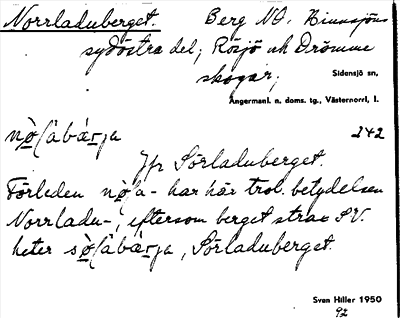 Norrladuberget. Berg NO. Binnsjöns
sydöstra del; Rösjö och Drömme
skogar; Sidensjö sn,
Ångermanl. n. doms. tg., Västernorrl. l.
242
Jfr Sörladuberget.
Förleden har här trol. betydelsen
Norrladu-, eftersom berget strax SV.
heter Sörladuberget.
Sven Hiller 1950
92